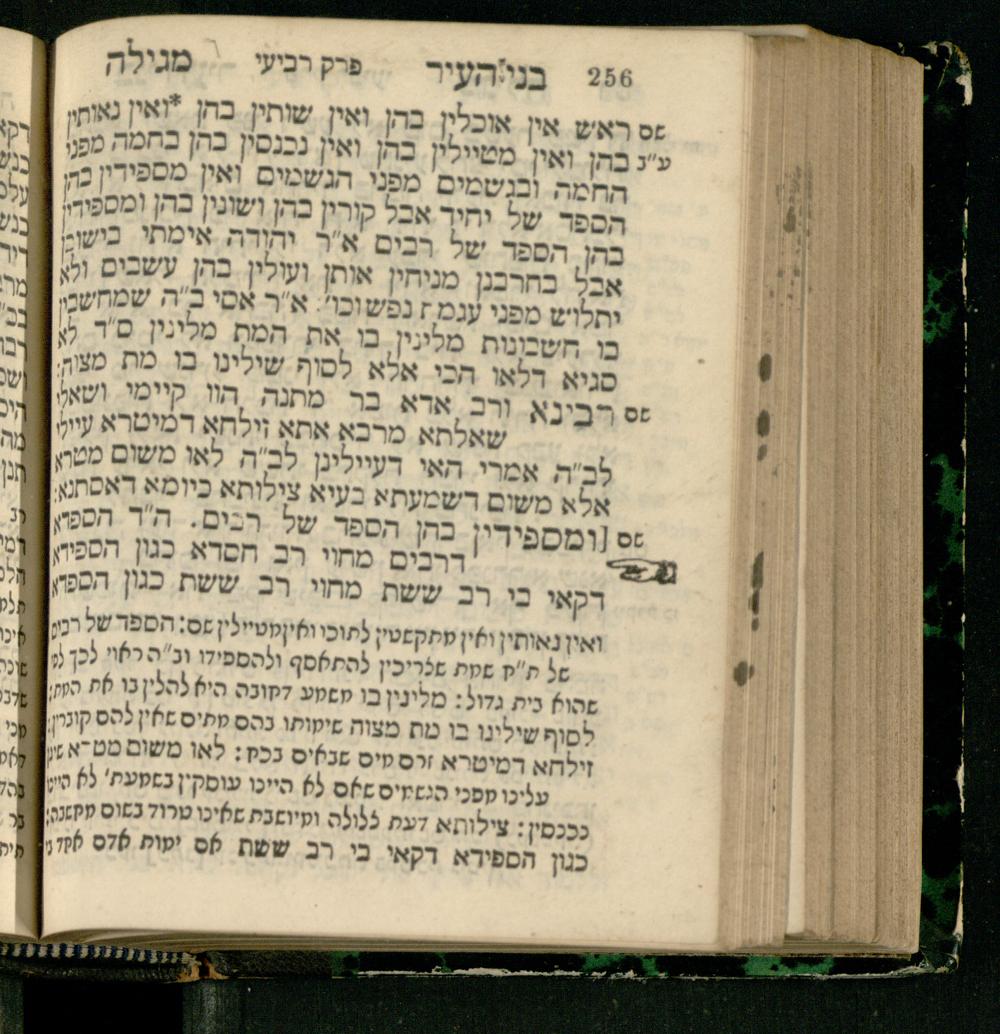 256 בני העיר פרק רביעי מגילה
שם ראש אין אוכלין בהן ואין שותין בהן *ואין נאותין
ע"ב בהן ואין מטיילין בהן ואין נכנסין בהן בחמה מפני
החמה ובגשמים מפני הגשמים ואין מספידין בהן
הספד של יחיד אבל קורין בהן ושונין בהן ומספידין
בהן הספד של רבים א"ר יהודה אימתי בישובן
אבל בחרבנן מניחין אותן ועולין בהן עשבים ולא
יתלוש מפני עגמת נפש וכו': א"ר אסי ב"ה שמחשבין
בו חשבונות מלינין בו את המת מלינין ס"ד לא
סגיא דלאו הכי אלא לסוף שילינו בו מת מצוה:
שם רבינא ורב אדא בר מתנה הוו קיימי ושאלי
שאלתא מרבא אתא זילחא דמיטרא עיילי
לב"ה אמרי האי דעיילינן לב"ה לאו משום מטרא
אלא משום דשמעתא בעיא צילותא כיומא דאסתנא:
שם [ומספידין בהן הספד של רבים. ה"ד הספדא
דרבים מחוי רב חסדא כגון הספידא
דקאי בי רב ששת מחוי רב ששת כגון הספדא
ואין נאותין ואין מתקשטין לתוכו ואין מטיילין שם: הספד של רבים
של ת"ח שמת שצריכין להתאסף ולהספידו וב"ה ראוי לכך לפי
שהוא בית גדול: מלינין בו משמע דחובה היא להלין בו את המת:
לסוף שילינו בו מת מצוה שימותו בהם מתים שאין להם קוברין:
זילחא דמיטרא זרם מים שבאים בכח: לאו משום מטרא שיגן
עלינו מפני הגשמים שאם לא היינו עוסקין בשמעת' לא היינו
נכנסין: צילותא דעת צלולה ומיושבת שאינו טרוד בשום מחשבה:
כגון הספידא דקאי בי רב ששת אם ימות אדם אחד בי